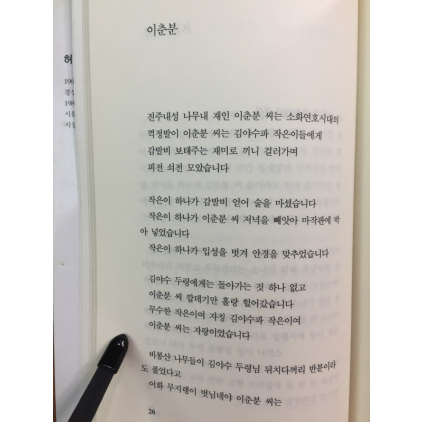 이춘분
허
진주내성 나무내 재인 이춘분 씨는 소화연호시대의
꺽정발이 이춘분 씨는 김야수과 작은이들에게
감발비 보태주는 재미로 끼니 걸러가며
피전 쇠전 모았습니다
작은이 하나가 감발비 얻어 술을 마셨습니다
작은이 하나가 이춘분 씨 저녁을 빼앗아 마작판에 박
아 넣었습니다
작은이 하나가 입성을 벗겨 안경을 맞추었습니다
김야수 두령에게는 돌아가는 것 하나 없고
이춘분 씨 깝데기만 훌랑 헐어갔습니다
무수한 작은이여 자칭 김야수과 작은이여
이춘분 씨는 자랑이었습니다
비봉산 나무들이 김야수 두령님 뒤치다꺼리 반분이라
도 풀었다고
이화 무지랭이 벗님네야 이춘분 씨는
26